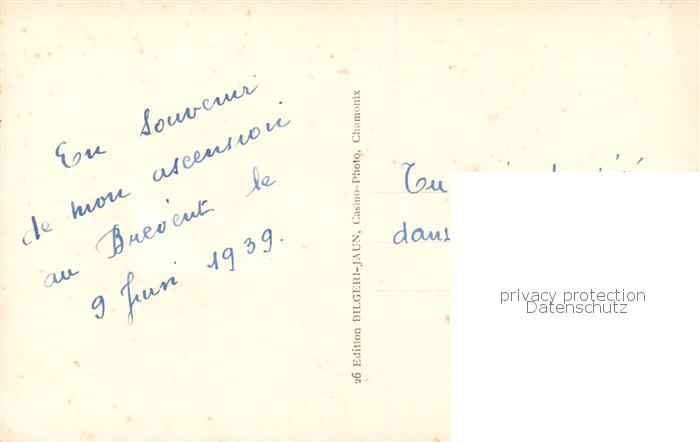 En Souvenir
de mon ascension
au Brévent le
9 Juin 1939.
26 Edition BILGERI-JAUN, Casino-Photo, Chamonix
Tu
dans
privacy protection
Datenschutz